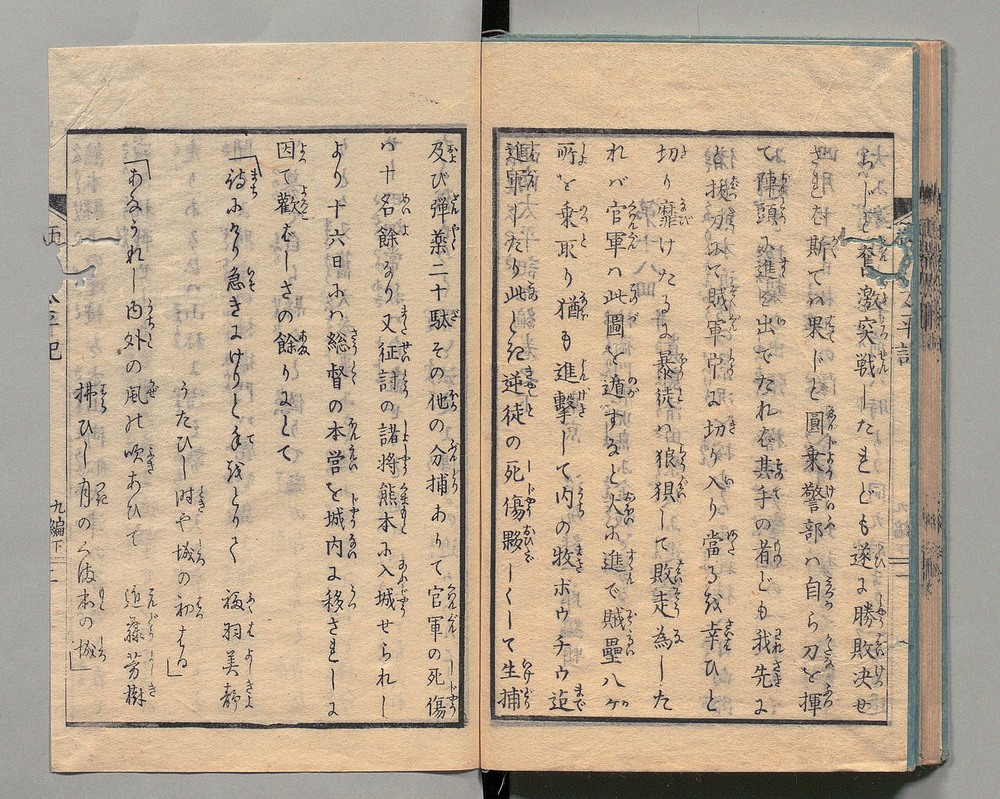 奮激突戦したれども遂に勝敗决せ
されば斯ては果じと圓乗警部ハ自ら刀を揮
て陣頭に進ミ出でたれバ其手の者ども我先に
と抜刀にて賊軍中に切り入り當るを幸ひと
切り靡けたるに暴徒ハ狼狽して敗走為した
れバ官軍ハ此圖を遁するなと大に進で賊壘八ヶ
所を乗取り猶も進撃して内の牧ボウチウ迄
進軍したり此とき逆徒の死傷夥しくして生捕
及び弾薬二十駄その他の分捕ありて官軍の死傷
ハ十名餘なり又征討の諸将熊本に入城せられし
より十六日にハ総督の本営を城内に移されしに
因て歡びしさの餘りにとて
「待に
急ぎにけりと手をとりて 福羽美静
うたひし時や城の初
」
「あなうれし内外の風の吹あひて 近藤芳樹
拂ひし月のくま本の城」
太平記
九編下